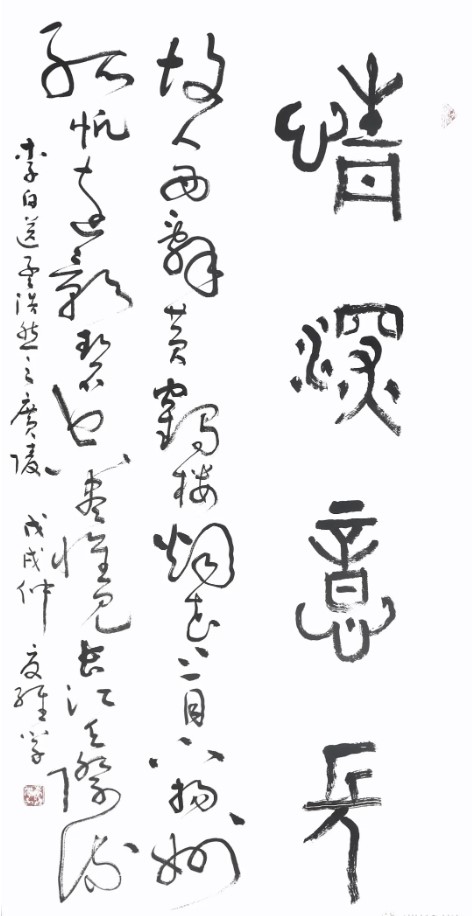 情深意長
故人西辭黃鶴樓煙花三月下揚州
孤帆遠影碧空盡惟見長江天際流
李白送孟浩然之廣陵 戊戌仲夏維学